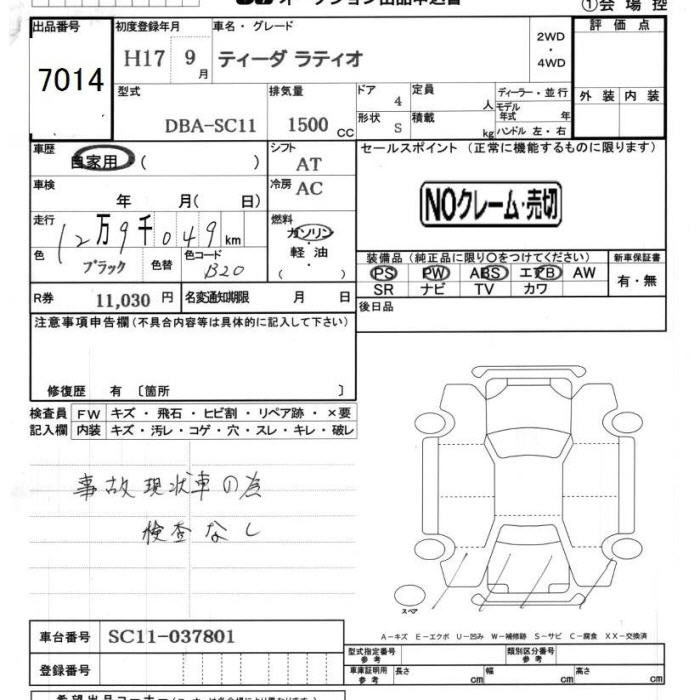 オークション出品申込書
①会場控
出品番号 初度登録年月 車名・グレード 2WD 評価点
7014 H17 9月 ティーダ ラティオ ・ 4WD
型式 排気量 ドア 4 定員 人 ディーラー・並行 外装 内装
DBA-SC11 1500 CC 形状 S 積載 kg モデル年式 年
ハンドル 左・右
車歴 自家用 ( ) シフト AT セールスポイント (正常に機能するものに限ります)
車検 年 月( 日) 冷房 AC
NOクレーム・売切
走行 12万9千049km 燃料 ガソリン・軽油 ( )
色 ブラック 色替 色コード B20
装備品 (純正品に限り〇をつけてください) 新車保証書
PS PW ABS エアB AW 有・無
SR ナビ TV カワ
R券 11,030 円 名変通知期限 月 日 後日品
注意事項申告欄 (不具合内容等は具体的に記入して下さい)
修復歴 有 〔箇所 〕
検査員 FW キズ・飛石・ヒビ割・リペア跡・×要
記入欄 内装 キズ・汚レ・コゲ・穴・スレ・キレ・破レ
事故現状車の為
検査なし
スペア
A－キズ E－エクボ U－凹み W－補修跡 S－サビ C－腐食 XX－交換済
車台番号 SC11-037801
型式指定番号 参考 類別区分番号 参考
登録番号
車庫証明用 参考 長さ cm 幅 cm 高さ cm